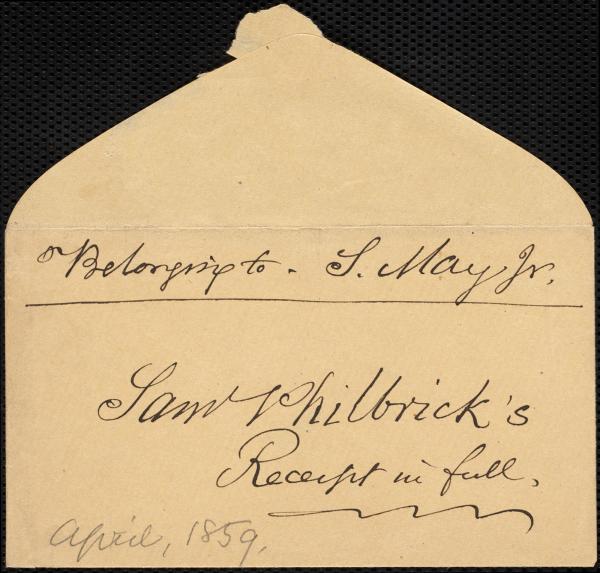 Belonging to - S. May Jr.
Saml Philbrick's
Receipt in full.
April, 1859.